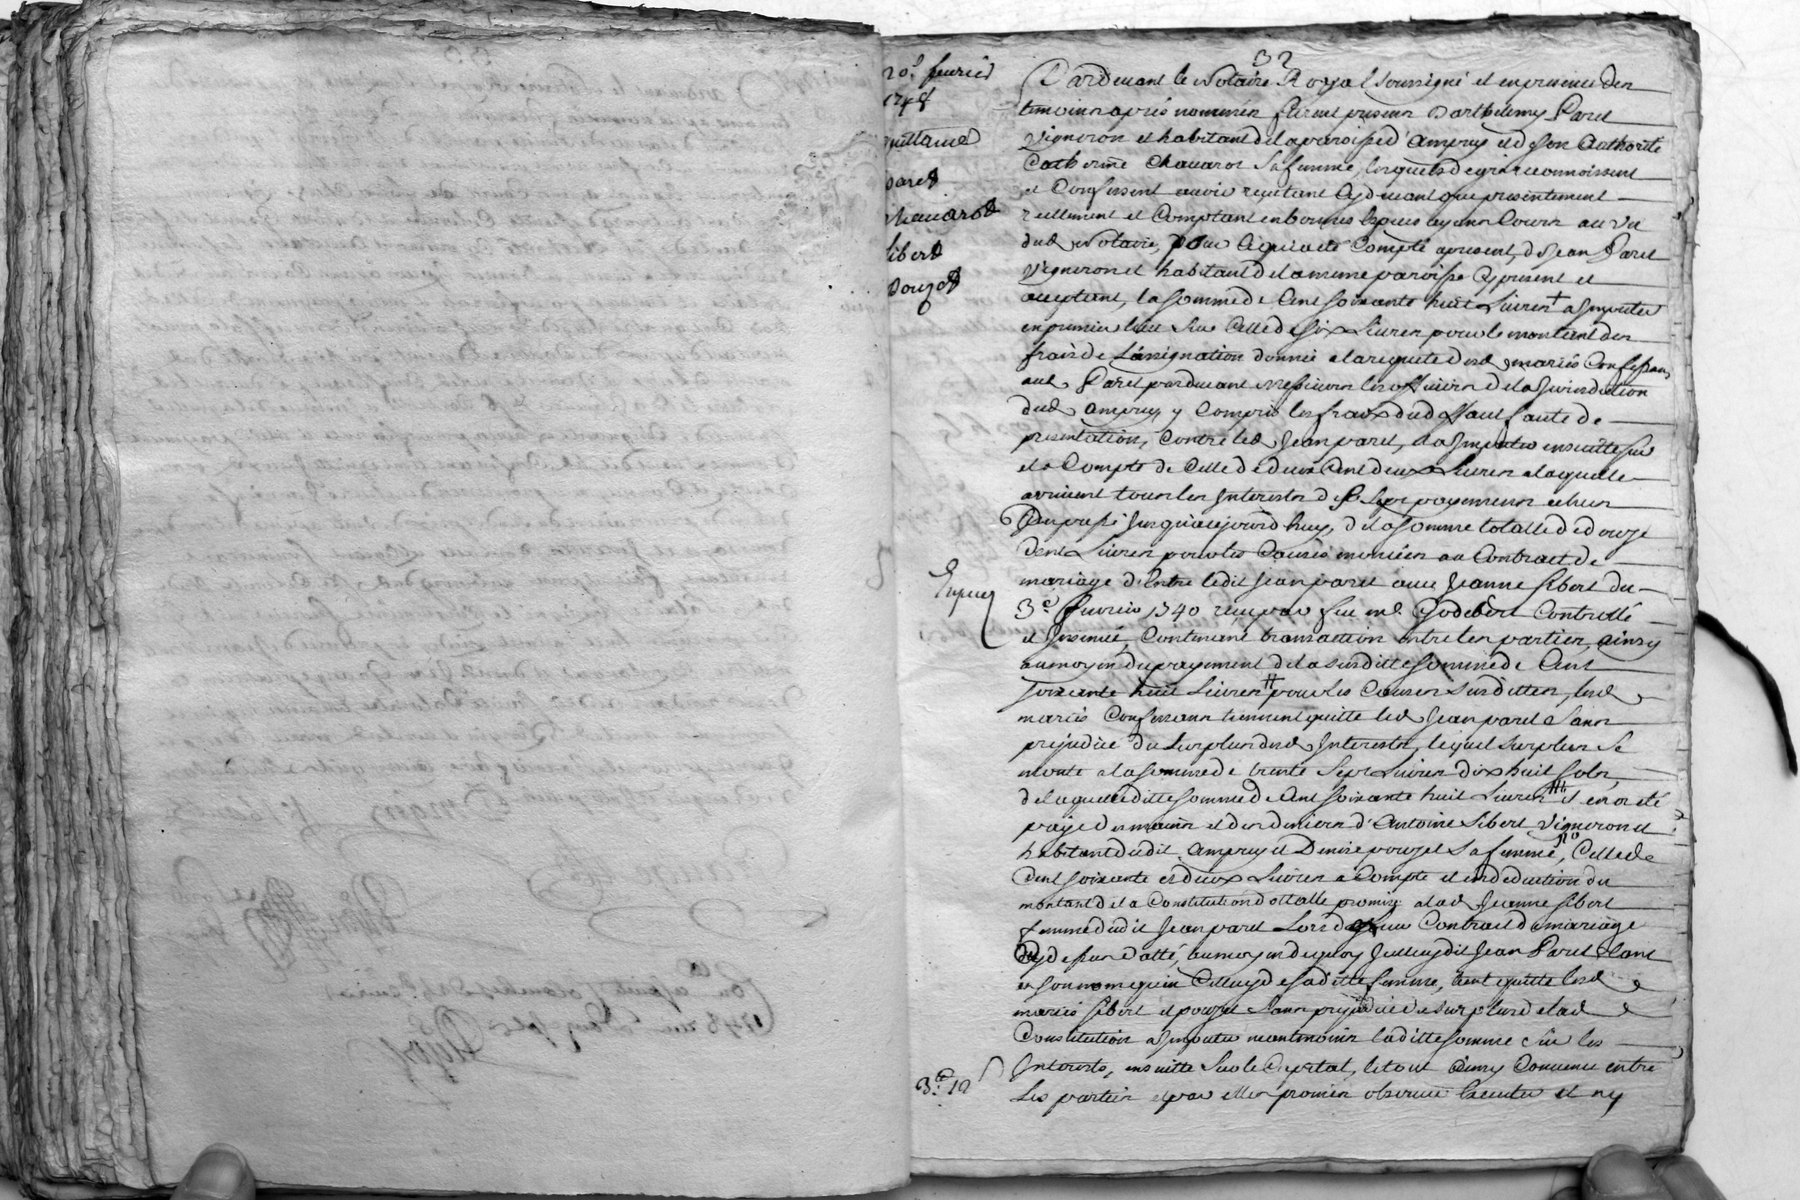 32
20.e fevrier
1748
quittance
Paret
Chavarot
Sibert
Pouzet
Pardevant le Notaire Royal soussigné et en presence des
temoins aprés nommés furent presens Barthelemy Paret
vigneron et habitant de la paroisse d'Ampuy et de son Authorité
Catherine Chavarot sa femme, lesquels de gré reconnoissent
et Confessent avoir receu tant cydevant que presentement
reellement et Comptant en bonnes especes ayans Cours au vu
dud. Notaire, pour ce qui a eté Compté apresent, de Jean Paret
vigneron et habitant de la meme paroisse cy present et
acceptant, la somme de Cent soixante huit Livres + a imputer
en premier lieu sur Celle de six Livres pour le montant des
frais de L'assignation donnée a la requete desd. mariés Confessans
aud. Paret pardevant Messieurs les officiers de la Jurisdiction
dud. Ampuy y Compris les frais dud. deffaut faute de
presentation, Contre led. Jean paret, et a Imputer ensuitte sur
et a Compte de Celle de deux Cent deux Livres a laquelle
arrivent tous les Interests des sept payemens echus
Jusqu'aujourd'huy, de la somme totalle de douze
Cent Livres pour les Causes enoncées au Contract de
mariage d'Entre ledit Jean paret avec Jeanne Sibert du
3.e fevrier 1740 reçu par feu me Godebert Controllé
et Insinué, Contenant transaction entre les parties, ainsy
au moyen du payement de la susditte somme de Cent
soixante huit Livres # pour les Causes susdittes, lesd.
mariés Confessans tiennent quitte led. Jean paret sans
prejudice du surplus desd. Interests, lequel surplus se
monte a la somme de trente sept Livres dix huit sols,
de laquelle ditte somme de Cent soixante huit Livres il en a eté
payé des mains et des deniers d'Antoine Sibert vigneron et
habitant dudit Ampuy et Denise pouzet sa femme, Celle de
Cent soixante et deux Livres a Compte et en deduction du
montant de la Constitution dottalle promise a lad. Jeanne Sibert
femme dudit Jean paret Lors de leur Contract de mariage
cydessus datté, au moyen de quoy Jcelluy dit Jean Paret tant
en son nom qu'en Celluy de sa ditte femme, tient quitte lesd.
mariés Sibert et pouzet sans prejudice du surplus de lad.
Constitution a Imputer neantmoins laditte somme sur les
Interests, ensuitte sur le Capital, le tout ainsy Convenu entre
Les parties et par elles promis observer executer et ny
3.e 12